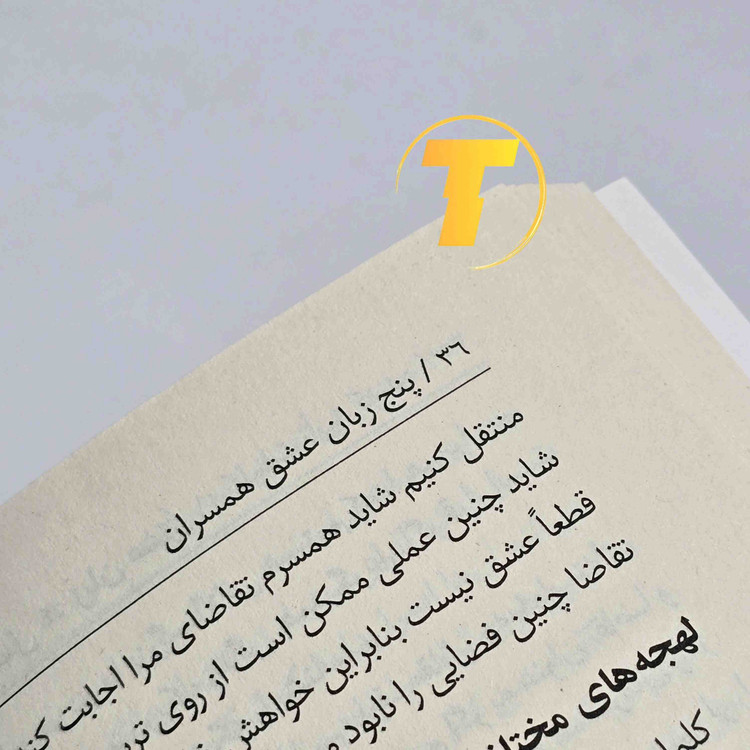 T
۳۶ / پنج زبان عشق همسران
منتقل کنیم شاید همسرم تقاضای مرا اجابت
شاید چنین عملی ممکن است از روی
قطعاً عشق نیست بنابراین خواهش
تقاضا چنین فضایی را نابود
لهجه‌های